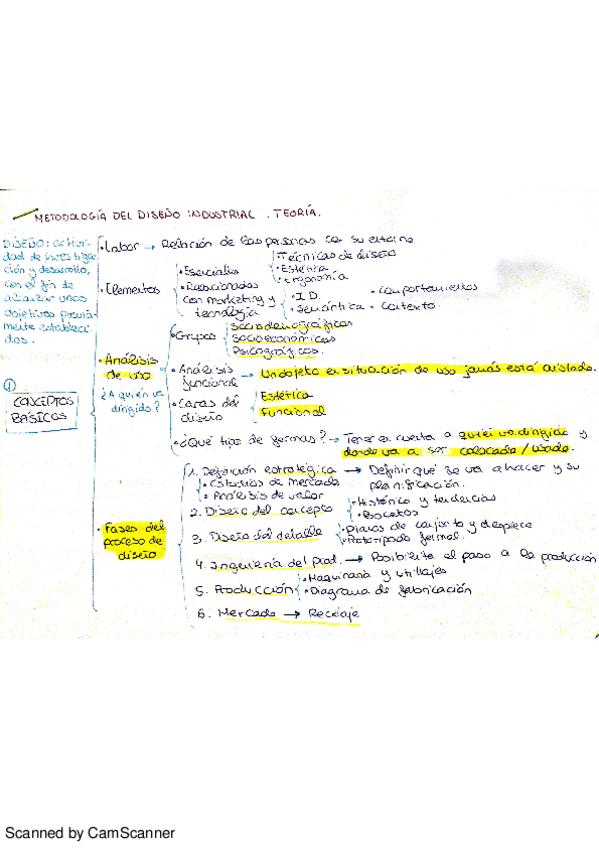 METODOLOGÍA DEL DISEÑO INDUSTRIAL . TEORÍA.
DISEÑO: activi-
dad de investiga-
ción y desarrollo,
con el fin de
alcanzar unos
objetivos previa-
mente estableci-
dos.
① CONCEPTOS
BÁSICOS
• Labor → Relación de las personas con su entorno
• Elementos
• Esenciales
• Técnicas de diseño
• Estética
• Ergonomía
• Relacionados
con marketing y
tecnología
• I.D.
• Semántica
- comportamientos
- Contexto
• Análisis
de uso
¿A quién va
dirigido?
• Grupos
Sociodemográficos
Socioeconómicos
Psicográficos.
• Análisis
funcional → Un objeto en situación de uso jamás está aislado.
• Caras del
diseño
Estética
Funcional
• ¿Qué tipo de formas? → Tener en cuenta a quien va dirigido y
donde va a ser colocado / usado.
• Fases del
proceso de
diseño
1. Definición estratégica → Definir qué se va a hacer y su
planificación.
• Estudios de mercado
• Análisis de valor
2. Diseño del concepto
• Histórico y tendencias
• Bocetos
3. Diseño del detalle
• Planos de conjunto y despiece
• Prototipado formal.
4. Ingeniería del prod. → Posibilite el paso a la producción
5. Producción
• Maquinaria y utillajes
• Diagrama de fabricación
6. Mercado → Reciclaje
Scanned by CamScanner